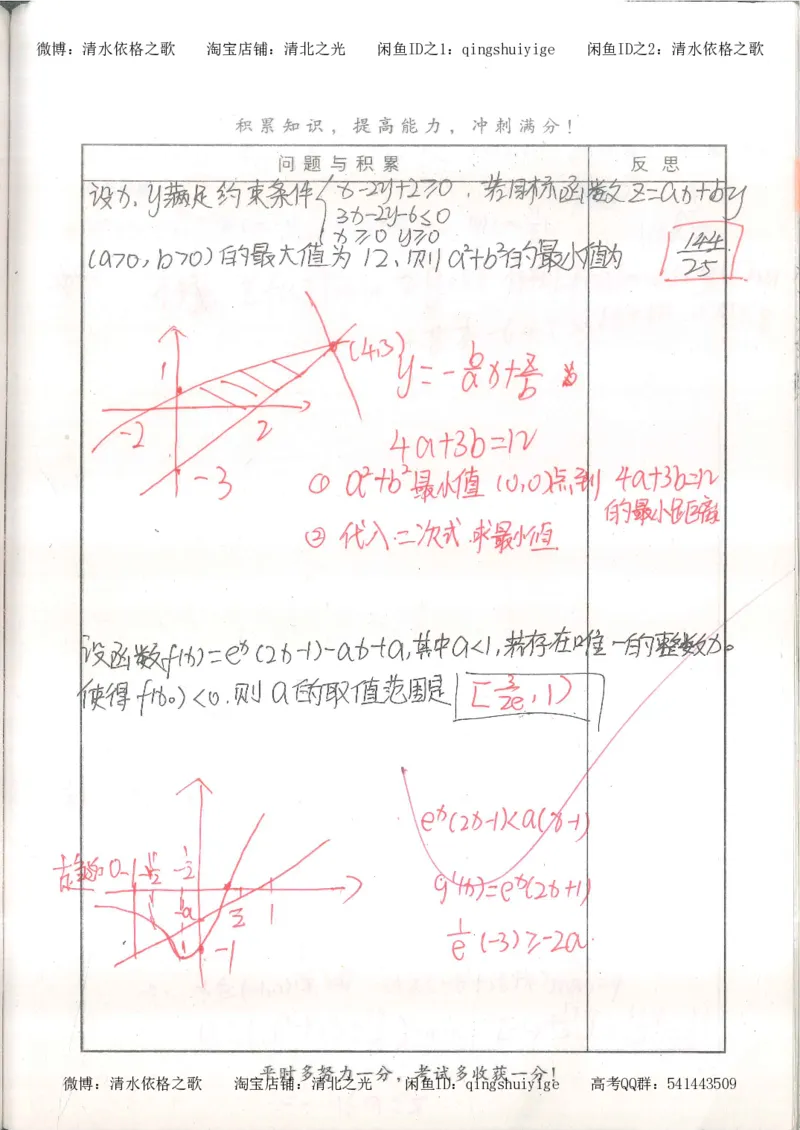 微博：清水依格之歌 淘宝店铺：清北之光 闲鱼ID之1：qingshuiyige 闲鱼ID之2：清水依格之歌
积累知识，提高能力，冲刺满分！
问题与积累 反思
设x,y满足约束条件{x-2y+2≥0，若目标函数z=ax+by
3x-2y-6≤0
x≥0 y≥0
(a>0,b>0)的最大值为12,则a²+b²的最小值为 144/25
(4,3)
y=-b/a x+z/b
1
-2 2
-3
4a+3b=12
① a²+b²最小值 (0,0)点到 4a+3b=12
的最小距离
② 代入二次式求最小值
设函数f(x)=eˣ(2x-1)-ax+a,其中a<1,若存在唯一的整数x₀
使得f(x₀)<0.则a的取值范围是 [3/2e,1)
eˣ(2x-1)<a(x-1)
-1 -1/2
-a 1
-1
g'(x)=eˣ(2x+1)
1/e·(-3)≥-2a
平时多努力一分，考试多收获一分！
微博：清水依格之歌 淘宝店铺：清北之光 闲鱼ID：qingshuiyige 高考QQ群：541443509